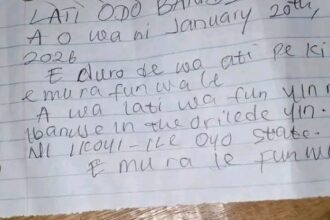 LATI ODO BA
A O wa ni January 20th,
2026
E duro de wa ati pe ki
emura fun wa le
A wa lati wa fun yin n
Ibanuje in the oritede yin.
NI IKOYI-ILE OYO State.
E mu ra le fun w